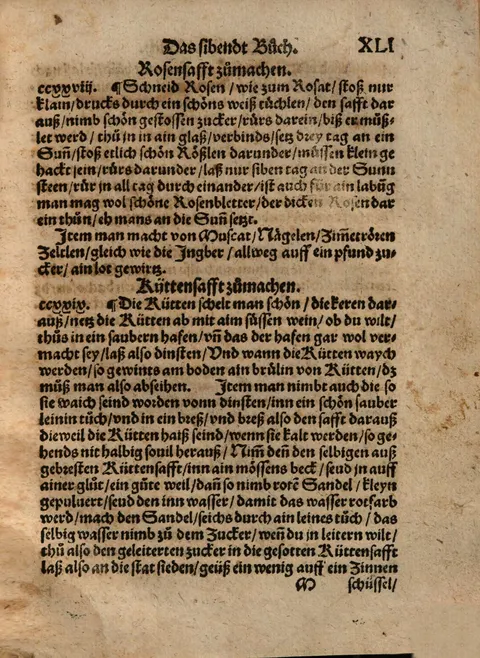 Das sibendt Bůch. XLI
Rosensafft zůmachen.
ccxxviij. ¶ Schneid Rosen / wie zum Rosat / stoß nur
klain / drucks durch ein schöns weiß tüchlen / den safft dar
auß / nimb schön gestossen zucker / rürs darein / biß er můß-
let werd / thů in in ain glaß / verbinds / setz drey tag an ein
Suñ / stoß etlich schön Rößlen darunder / müssen klein ge
hackt sein / rürs darunder / laß nur siben tag an der Sunn
steen / rür in all tag durch einander / ist auch für ain labũg
man mag wol schöne Rosenbletter / der dicken Rosen dar
ein thůn / eh mans an die Suñ setzt.
Item man macht von Muscat / Nägelen / Zim̃etrören
Zeltlen / gleich wie die Ingber / allweg auff ein pfund zu-
cker / ain lot gewirtz.
Küttensafft zůmachen.
ccxxix. ¶ Die Kütten schelt man schön / die keren dar-
auß / netz die Kütten ab mit aim süssen wein / ob du wilt /
thůs in ein saubern hafen / vñ das der hafen gar wol ver-
macht sey / laß also dinsten / Vnd wann die Kütten waych
werden / so gewints am boden ain brülin von Kütten / dz
můß man also abseihen. Item man nimbt auch die so
sie waich seind worden vonn dinsten / inn ein schön sauber
leinin tůch / vnd in ein breß / vnd breß also den safft darauß
dieweil die Kütten haiß seind / wenn sie kalt werden / so ge-
hends nit halbig souil herauß / Nim̃ deñ den selbigen auß
gebresten Küttensafft / inn ain mössens beck / seud jn auff
ainer glůt / ein gůte weil / dañ so nimb rotẽ Sandel / kleyn
gepuluert / seud den inn wasser / damit das wasser rotfarb
werd / mach den Sandel / seichs durch ain leines tůch / das
selbig wasser nimb zů dem Zucker / weñ du jn leitern wilt /
thů also den geleiterten zucker in die gesotten Küttensafft
laß also an die stat sieden / geüß ein wenig auff ein Zinnen
M schüssel /